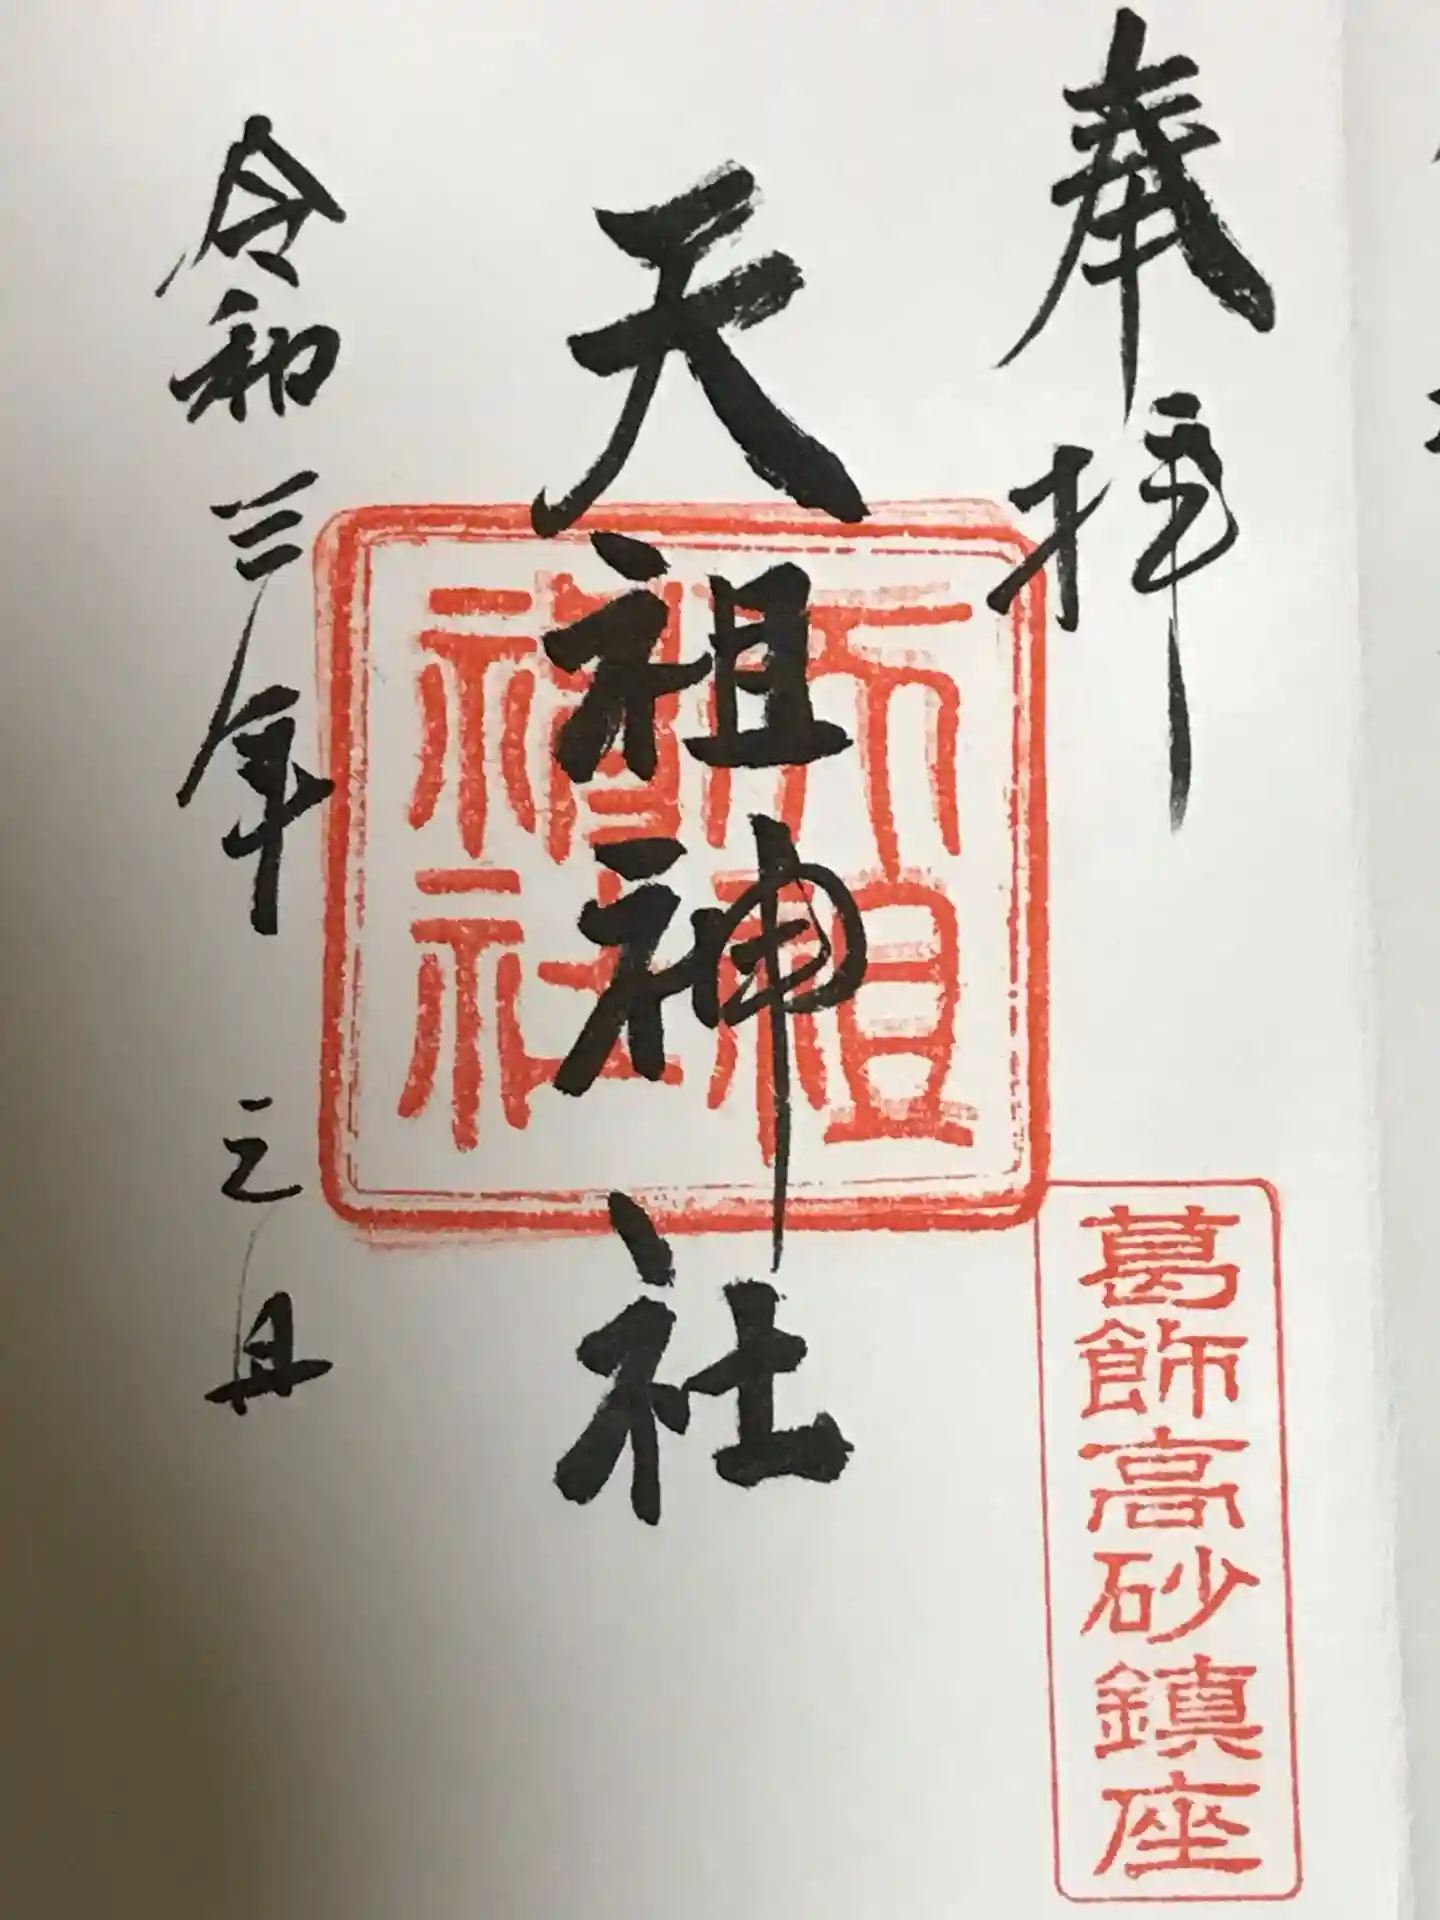 奉拝
葛飾高砂鎮座
天祖神社
天祖
神社
令和三年 元旦